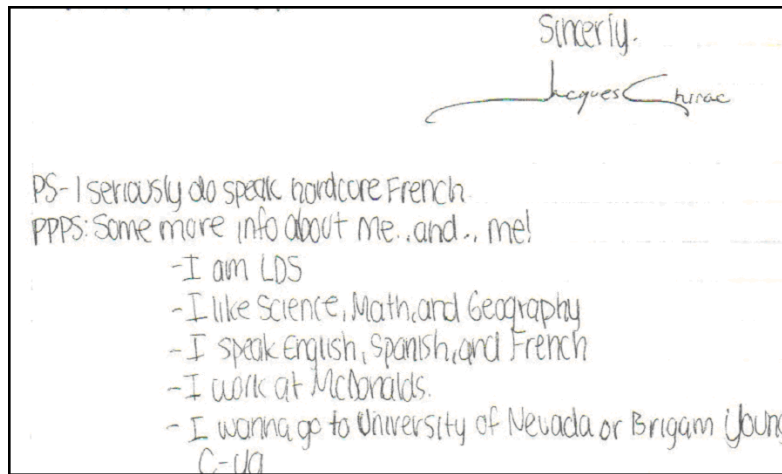 Sincerly.
Jacques Chirac
PS-I seriously do speak hardcore French
PPPS: Some more info about me..and.. me!
-I am LDS
-I like Science, Math, and Geography
-I speak English, Spanish, and French
-I work at McDonalds.
-I wanna go to University of Nevada or Brigam Young
C-ya